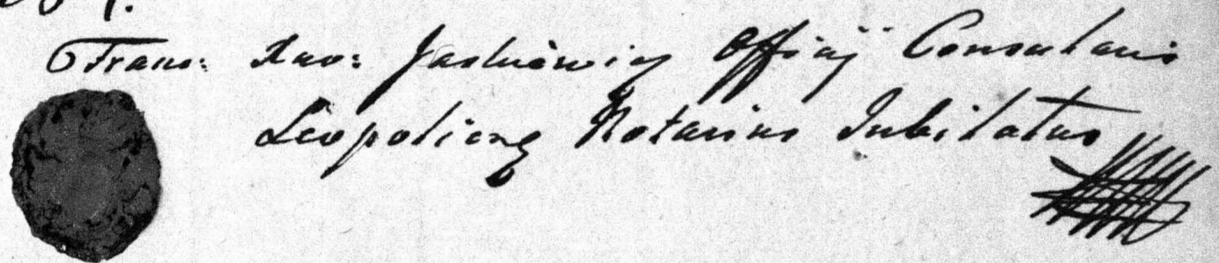 Franc: Xav: Jaśkiewicz Officij Consularis
Leopolieng Notarius Jubilatus